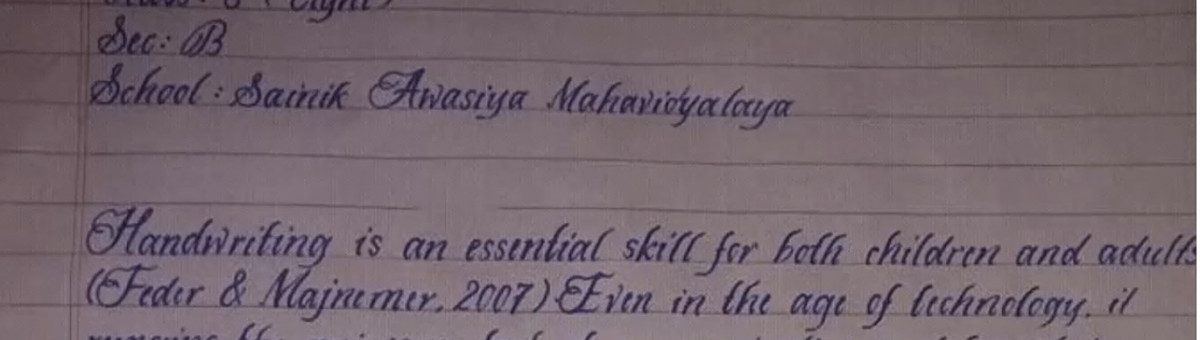 Sec: B
School: Sainik Awasiya Mahavidyalaya
Handwriting is an essential skill for both children and adults
(Feder & Majnemer, 2007) Even in the age of technology, it